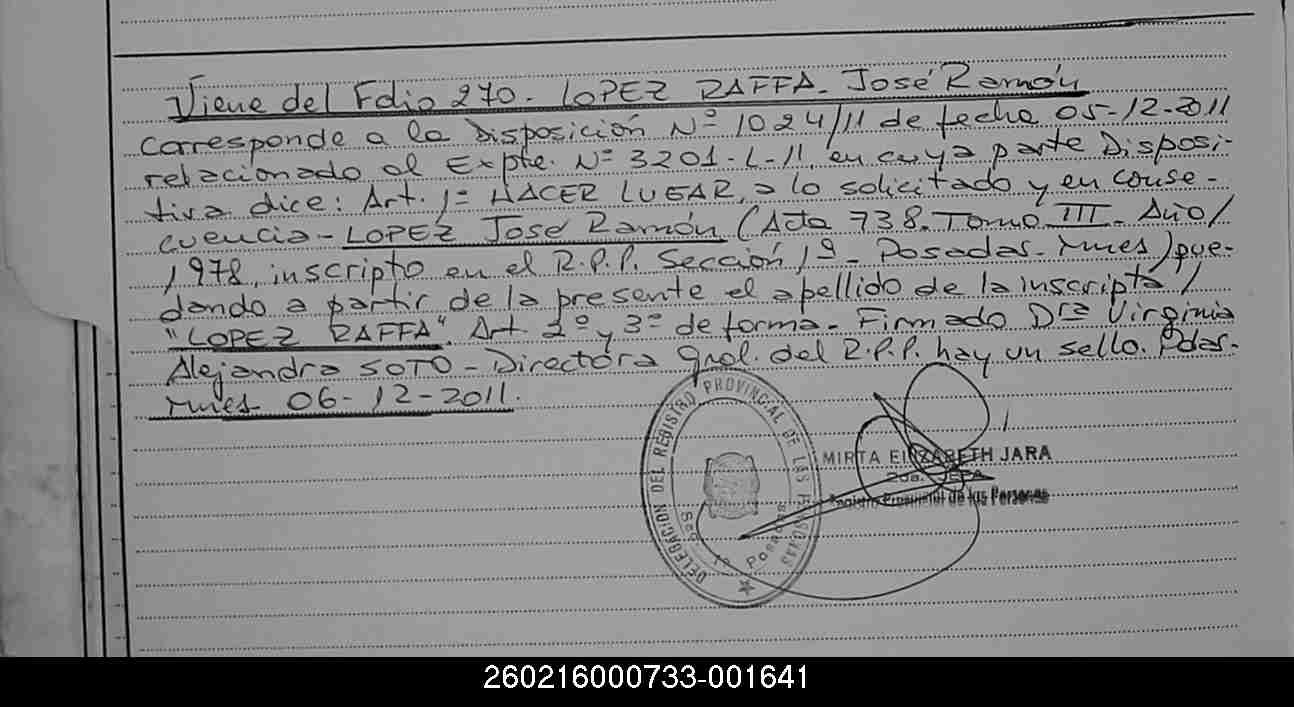 Viene del Folio 270 - LOPEZ RAFFA - José Ramón
corresponde a la Disposición Nº 1024/11 de fecha 05-12-2011
relacionado al Expte. Nº 3201-L-11, en cuya parte Disposi-
tiva dice: Art. 1º HACER LUGAR, a lo solicitado y en conse-
cuencia - LOPEZ José Ramón (Acta 738. Tomo III - Año/
1978, inscripto en el R.P.P. Sección 1º - Posadas - Mnes) que-
dando a partir de la presente el apellido de la inscripta/
"LOPEZ RAFFA". Art 2º y 3º de forma - Firmado Dra Virginia
Alejandra SOTO - Directora Gral. del R.P.P. hay un sello. Pdas.
Mnes 06-12-2011.
DELEGACION DEL REGISTRO PROVINCIAL DE LAS PERSONAS
Sec. 1º Posadas
MIRTA ELIZABETH JARA
2da. JEFA
Registro Provincial de las Personas
260216000733-001641